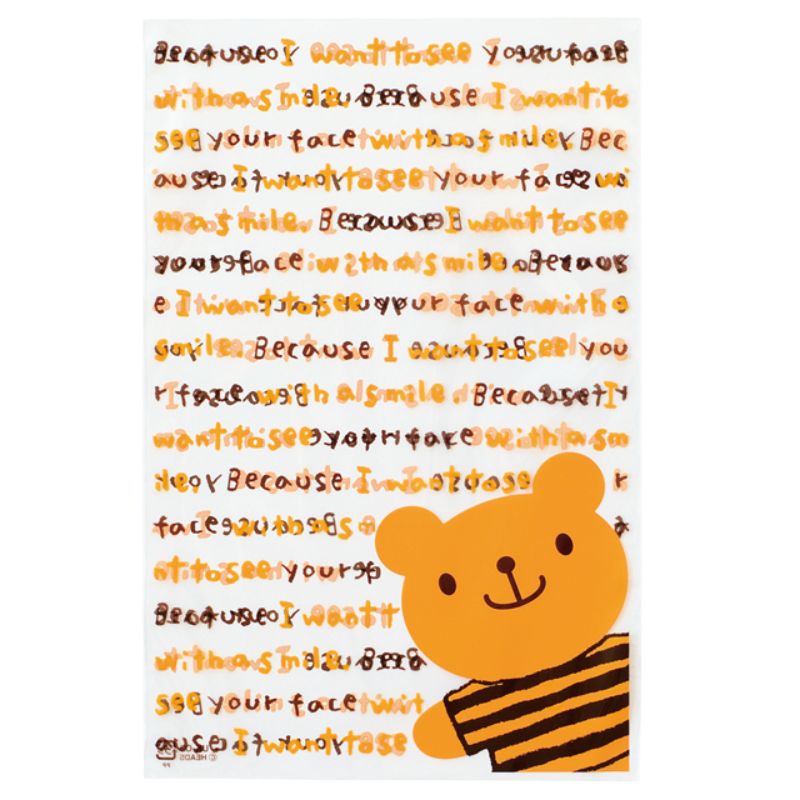 Because I want to see your face
with a smile. Because I want to
see your face with a smile. Bec
ause I want to see your face wi
th a smile. Because I want to see
your face with a smile. Becaus
e I want to see your face with a
smile. Because I want to see you
r face with a smile. Because I
want to see your face with a sm
ile. Because I want to see
face with a sm
nt to see your
Because I want t
with a smile. Bec
see your face wit
ause I want to se
© HEADS